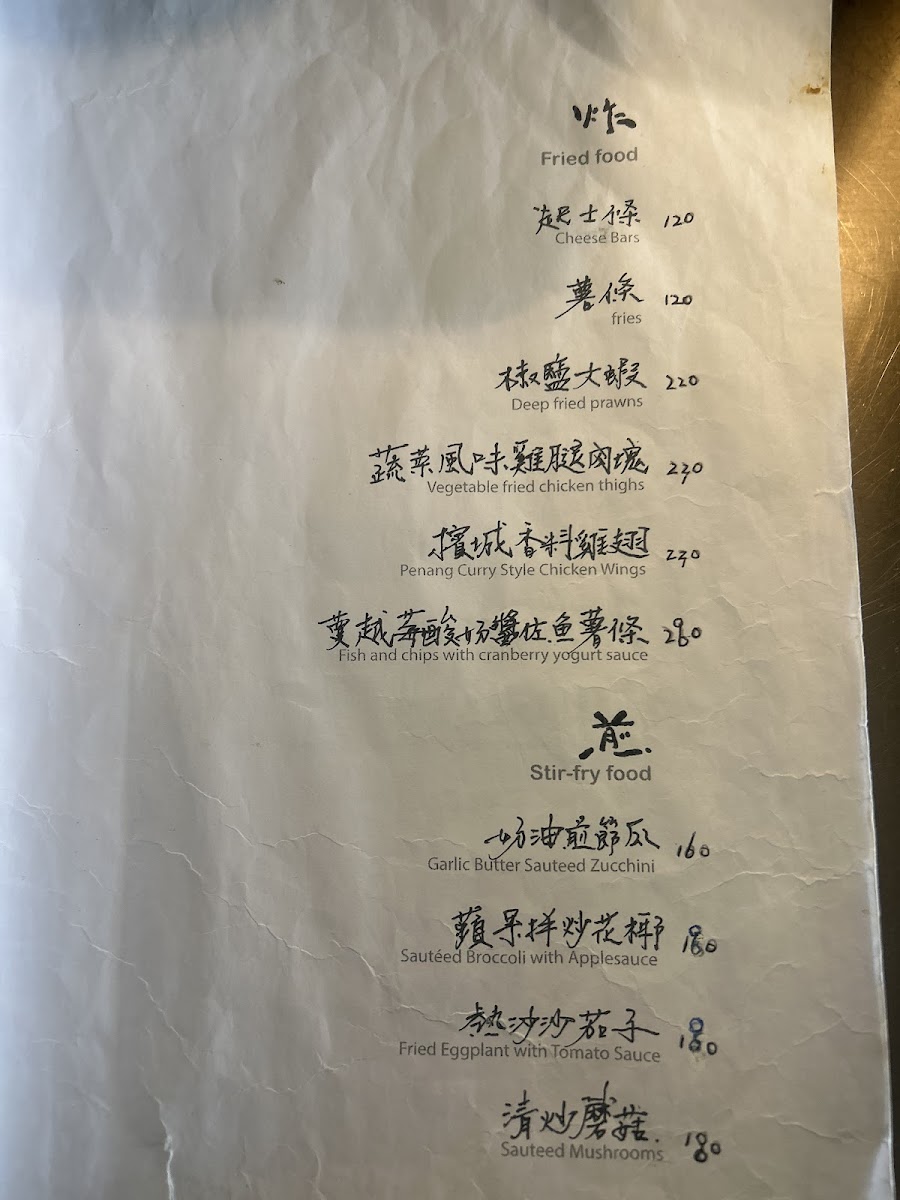 炸
Fried food
起士條 120
Cheese Bars
薯條 120
fries
椒鹽大蝦 220
Deep fried prawns
蔬菜風味雞腿肉塊 230
Vegetable fried chicken thighs
檳城香料雞翅 230
Penang Curry Style Chicken Wings
蔓越莓酸奶醬佐魚薯條 280
Fish and chips with cranberry yogurt sauce
煎
Stir-fry food
奶油煎節瓜 160
Garlic Butter Sauteed Zucchini
蘋果拌炒花椰 180
Sautéed Broccoli with Applesauce
熱沙沙茄子 180
Fried Eggplant with Tomato Sauce
清炒蘑菇. 180
Sauteed Mushrooms